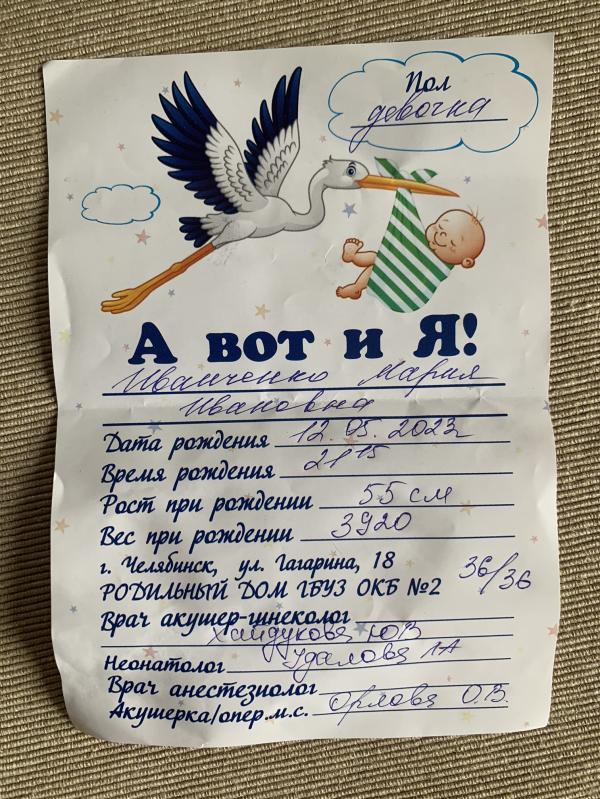 Пол
девочка
А вот и Я!
Иванченко Мария
Ивановна
Дата рождения 12.05.2023г
Время рождения 21 15
Рост при рождении 55 см
Вес при рождении 3920
г. Челябинск, ул. Гагарина, 18
РОДИЛЬНЫЙ ДОМ ГБУЗ ОКБ №2 36/36
Врач акушер-гинеколог
Хайдукова Ю В
Неонатолог Удалова ЛА
Врач анестезиолог
Акушерка/опер.м.с. Орлова О.В.